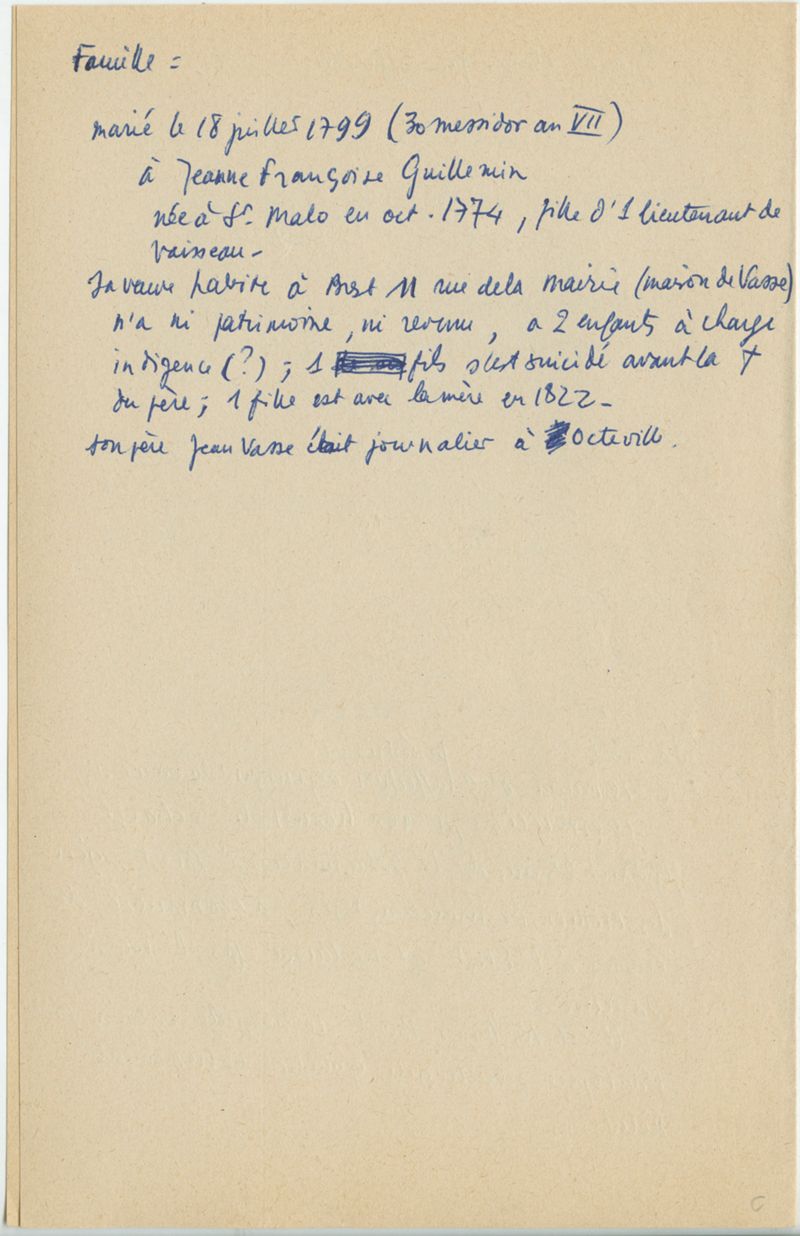 Famille =
marié le 18 juillet 1799 (30 messidor an VII)
à Jeanne Françoise Guillemin
née à St. Malo en oct. 1774, fille d'1 lieutenant de
vaisseau -
Sa veuve habite à Brest 11 rue de la Mairie (maison de Vasse)
n'a ni patrimoine, ni revenu, a 2 enfants à charge
indigence (?) ; 1 fils s'est suicidé avant la †
du père ; 1 fille est avec la mère en 1822 -
son père Jean Vasse était journalier à Octeville.
C